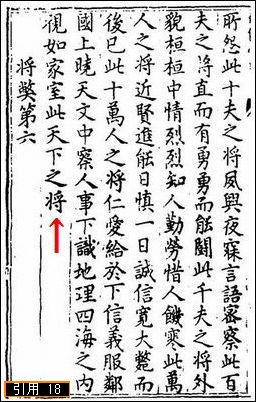 所怨此十夫之將夙興夜寐言語密察此百
夫之將直而有勇勇而能鬪此千夫之將外
貌桓桓中情烈烈知人勤勞惜人饑寒此萬
人之將近賢進能日慎一日誠信寬大斃而
後已此十萬人之將仁愛給於下信義服鄰
國上曉天文中察人事下識地理四海之內
視如家室此天下之將
將獘第六
引用 18